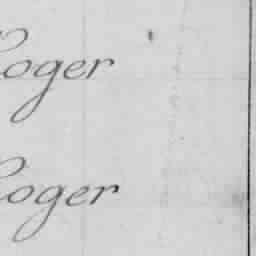 Roger
Roger